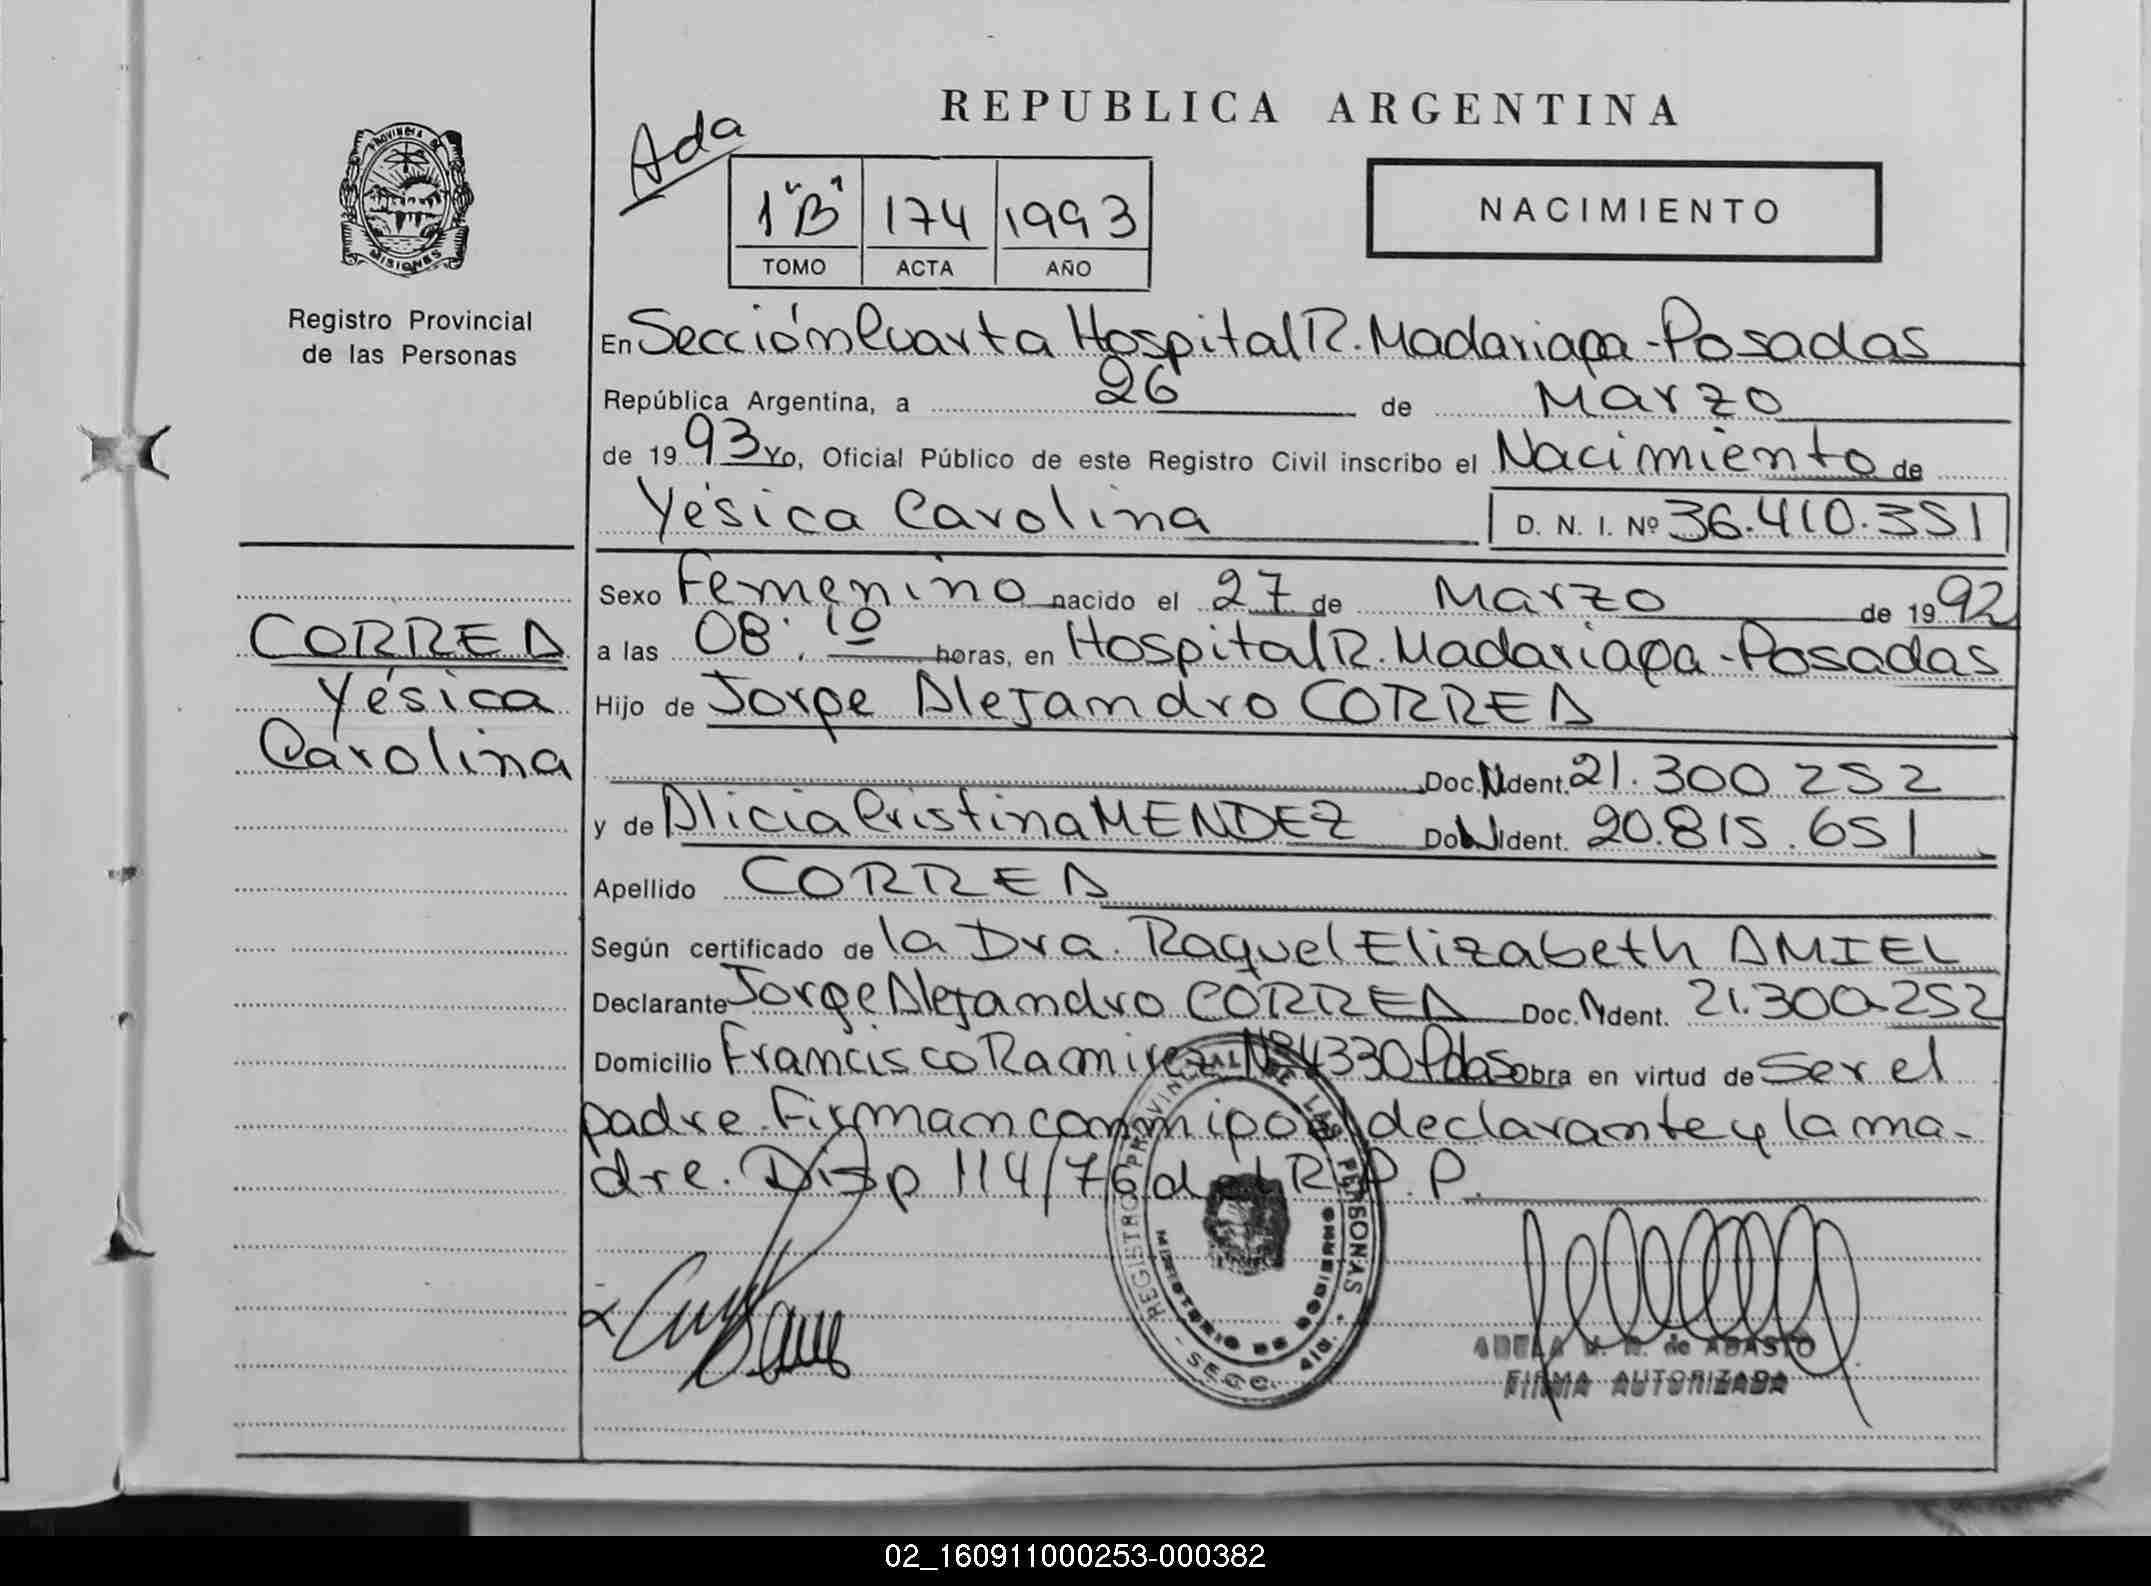 REPUBLICA ARGENTINA
Ada
1 "B" 174 1993
TOMO ACTA AÑO
NACIMIENTO
PROVINCIA DE MISIONES
Registro Provincial
de las Personas
CORREA
Yésica
Carolina
En Sección Cuarta Hospital R. Madariaga - Posadas
República Argentina, a 26 de Marzo
de 1993 Yo, Oficial Público de este Registro Civil inscribo el Nacimiento de
Yésica Carolina D. N. I. Nº 36.410.351
Sexo Femenino nacido el 27 de Marzo de 1992
a las 08:10 horas, en Hospital R. Madariaga - Posadas
Hijo de Jorge Alejandro CORREA
Doc. N Ident. 21.300.252
y de Alicia Cristina MENDEZ Doc. N Ident. 20.815.651
Apellido CORREA
Según certificado de la Dra. Raquel Elizabeth AMIEL
Declarante Jorge Alejandro CORREA Doc. N Ident. 21.300.252
Domicilio Francisco Ramirez Nº 4330 Pdas Obra en virtud de Ser el
padre. Firman conmigo el declarante y la ma-
dre. Disp 114/76 del R.P.P.
REGISTRO PROVINCIAL DE LAS PERSONAS
MINISTERIO DE GOBIERNO
SECC. 4ta.
ADELA de ABASTO
FIRMA AUTORIZADA
02_160911000253-000382